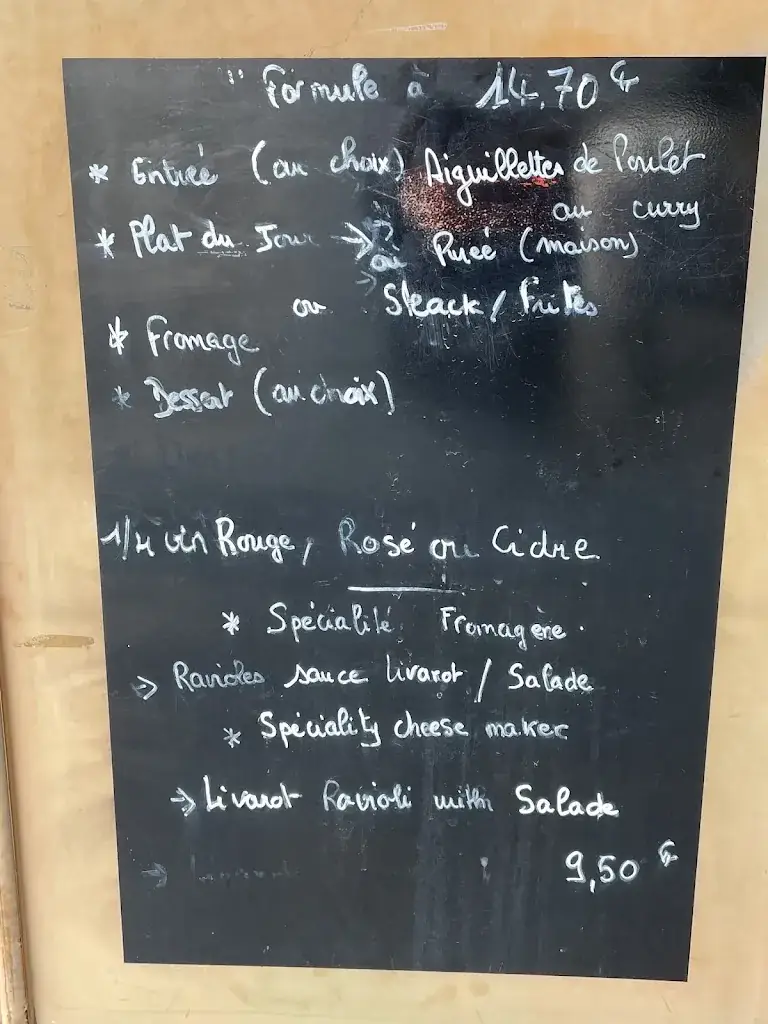 " Formule à 14,70 €
* Entrée (au choix) Aiguillettes de Poulet
au curry
* Plat du Jour → Purée (maison)
ou
ou Steack / Frites
* Fromage
* Dessert (au choix)
1/4 vin Rouge, Rosé ou Cidre
* Spécialité Fromagère.
→ Ravioles sauce Livarot / Salade
* Spéciality cheese maker
→ Livarot Ravioli with Salade
9,50 €